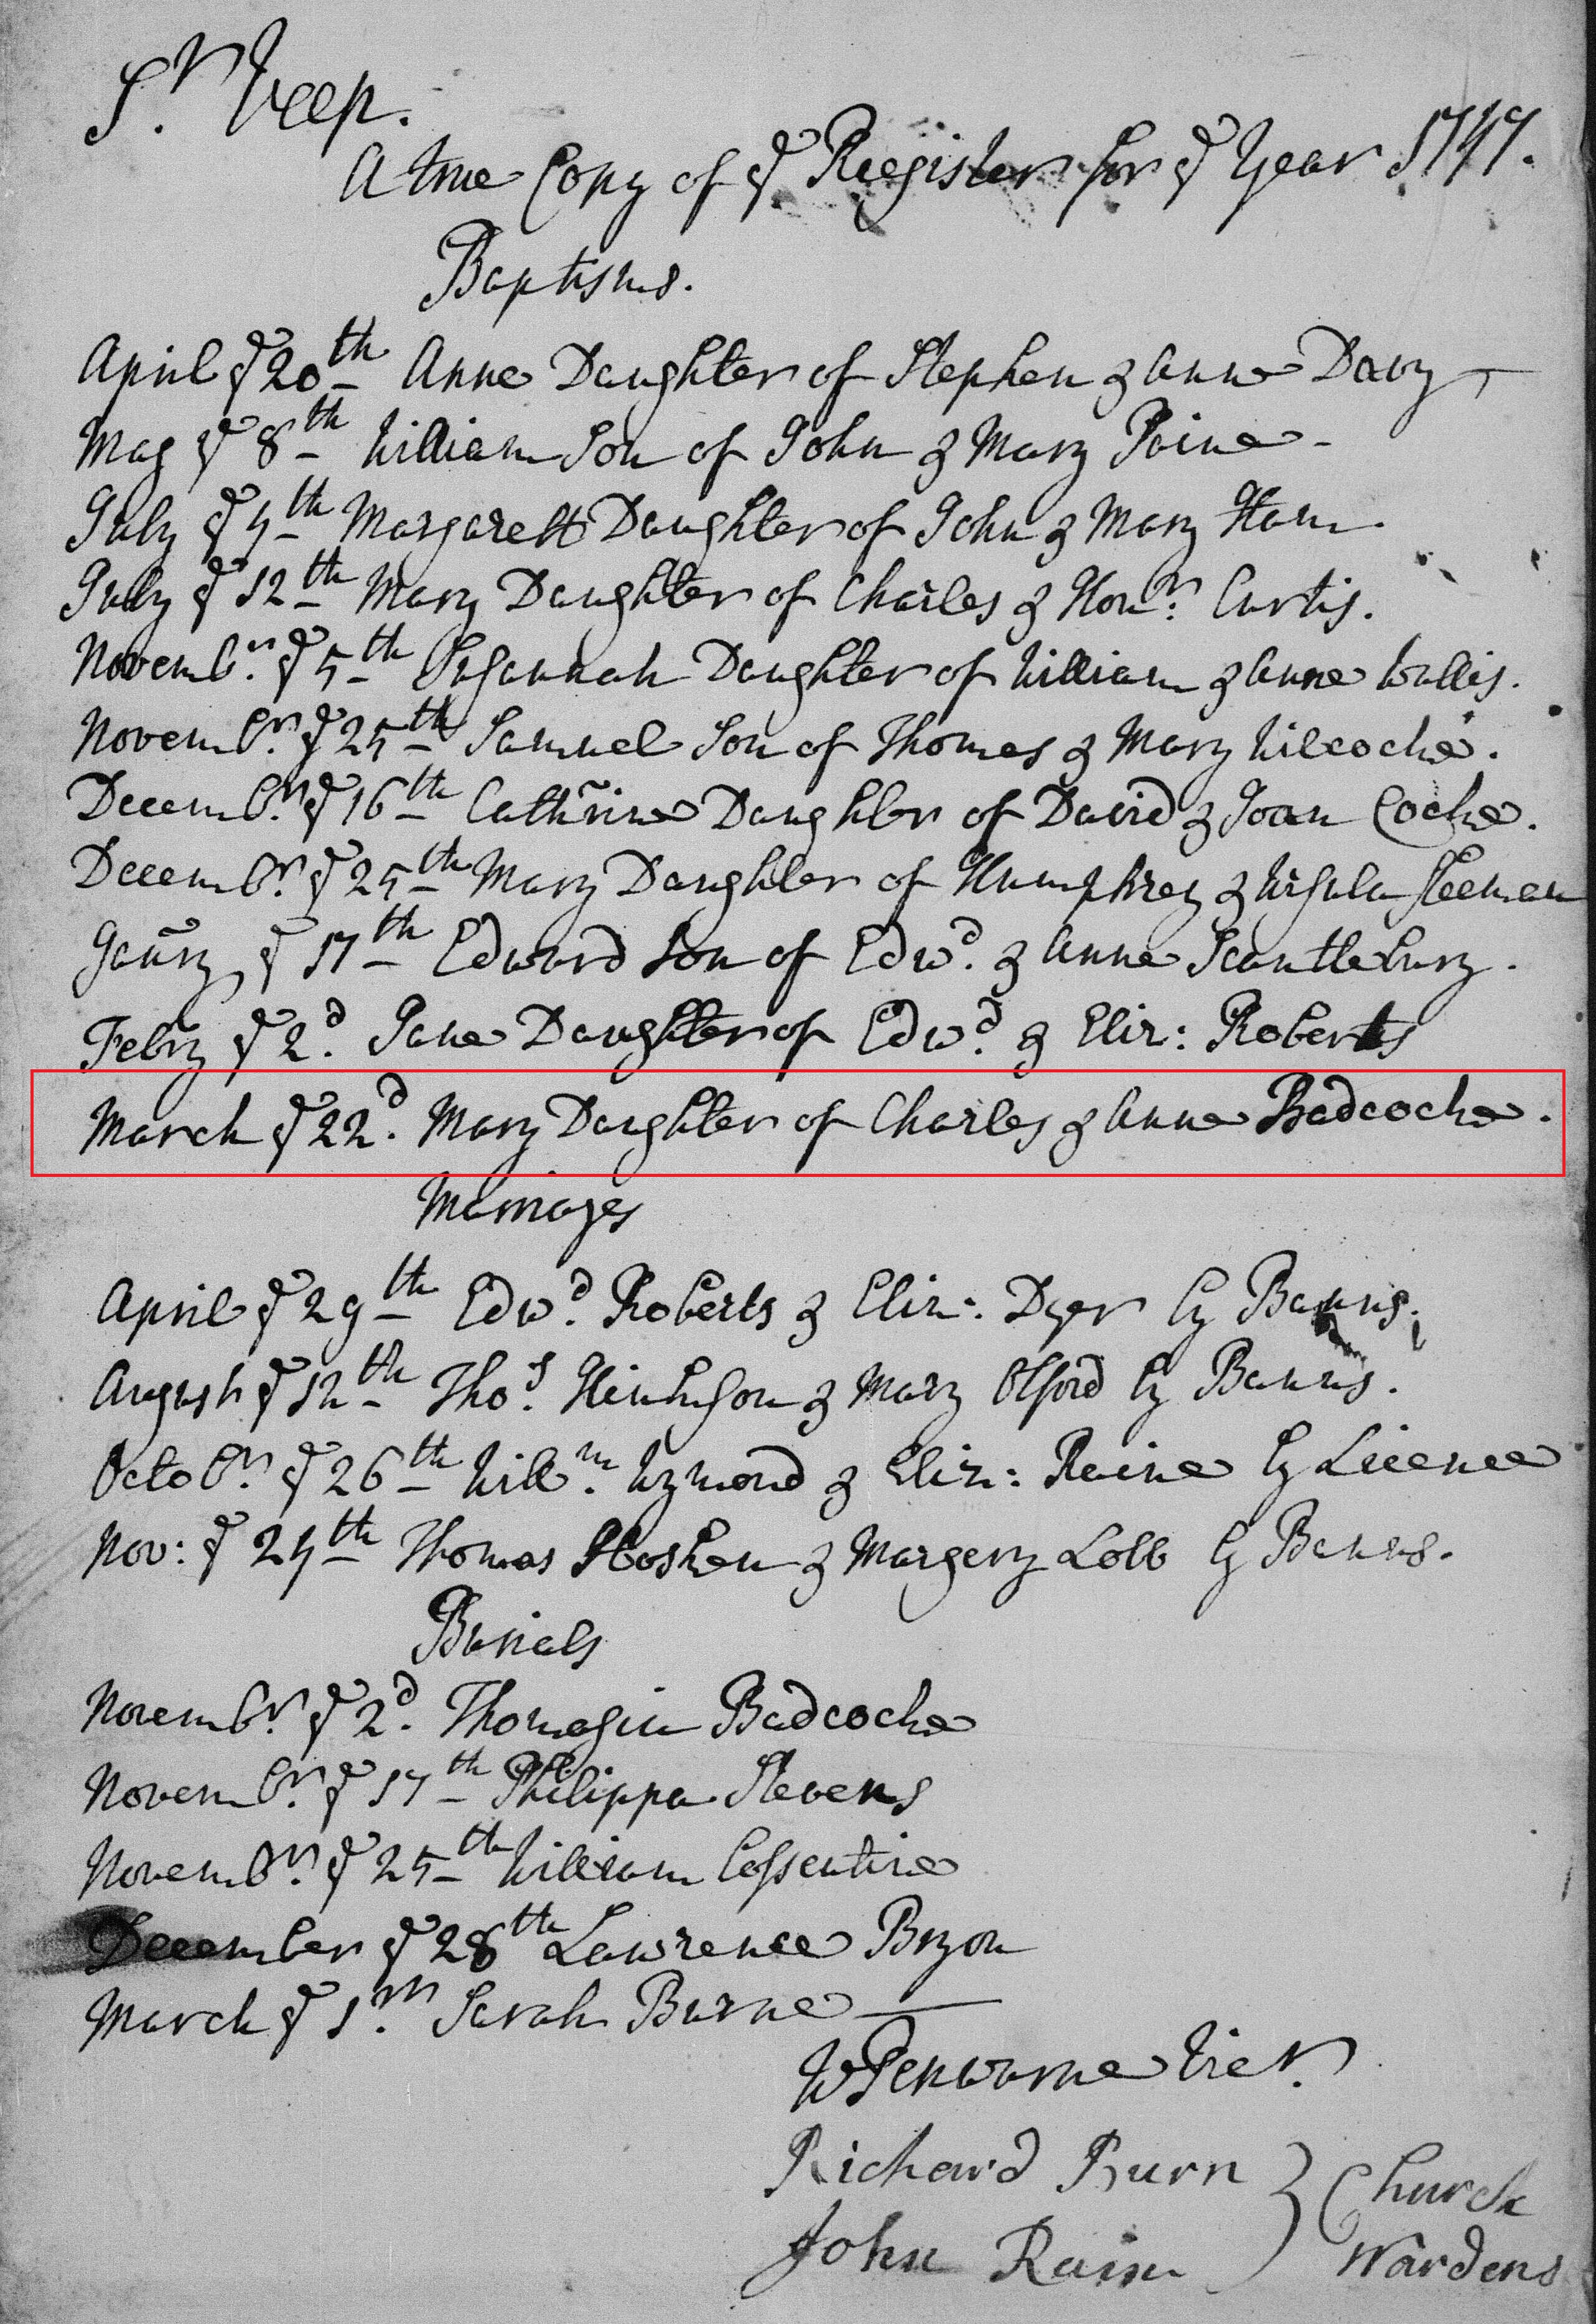 St Veep.
A true Copy of ye Register for ye Year 1747.
Baptisms.
April ye 20th Anne Daughter of Stephen & Anne Davy
May ye 8th William Son of John & Mary Paine
July ye 4th Margarett Daughter of John & Mary Ham.
July ye 12th Mary Daughter of Charles & Honr: Curtis.
Novembr. ye 5th Susannah Daughter of William & Anne Wallis.
Novembr. ye 25th Samuel Son of Thomas & Mary Wilcocke.
Decembr. ye 16th Cathrine Daughter of David & Joan Cocke.
Decembr. ye 25th Mary Daughter of Humphrey & Ursula Sleeman
Janry ye 17th Edward Son of Edwd. & Anne Scantlebury.
Febry ye 2d. Jane Daughter of Edwd. & Eliz: Roberts
March ye 22d. Mary Daughter of Charles & Anne Badcocke.
Marriages
April ye 29th Edwd. Roberts & Eliz: Dyer by Banns.
August ye 12th Thos. & Mary Olford by Banns.
Octobr. ye 26th Willm. Wymond & Eliz: Raine by Licence
Nov: ye 24th Thomas Hosken & Margery Lobb by Banns.
Burials
Novembr. ye 2d. Thomasin Badcocke
Novembr. ye 17th Philippa Stevens
Novembr. ye 25th William Cossentine
December ye 28th Lawrence Bryon
March ye 1st. Sarah Burne
W Penwarne Vicr.
Richard Burn } Church
John Rain } Wardens